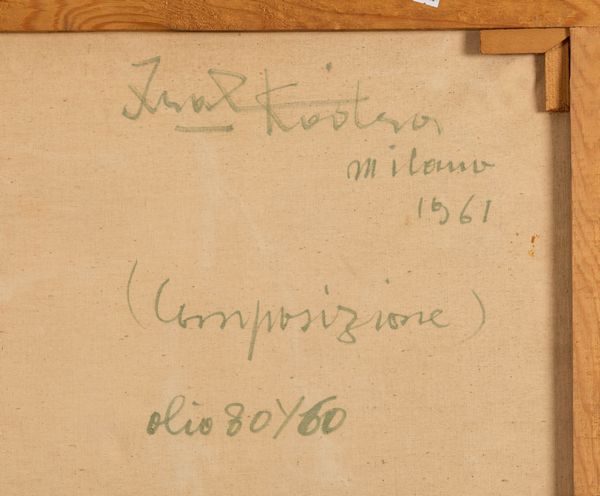 Kodra
milano
1961
(Composizione)
olio 80/60